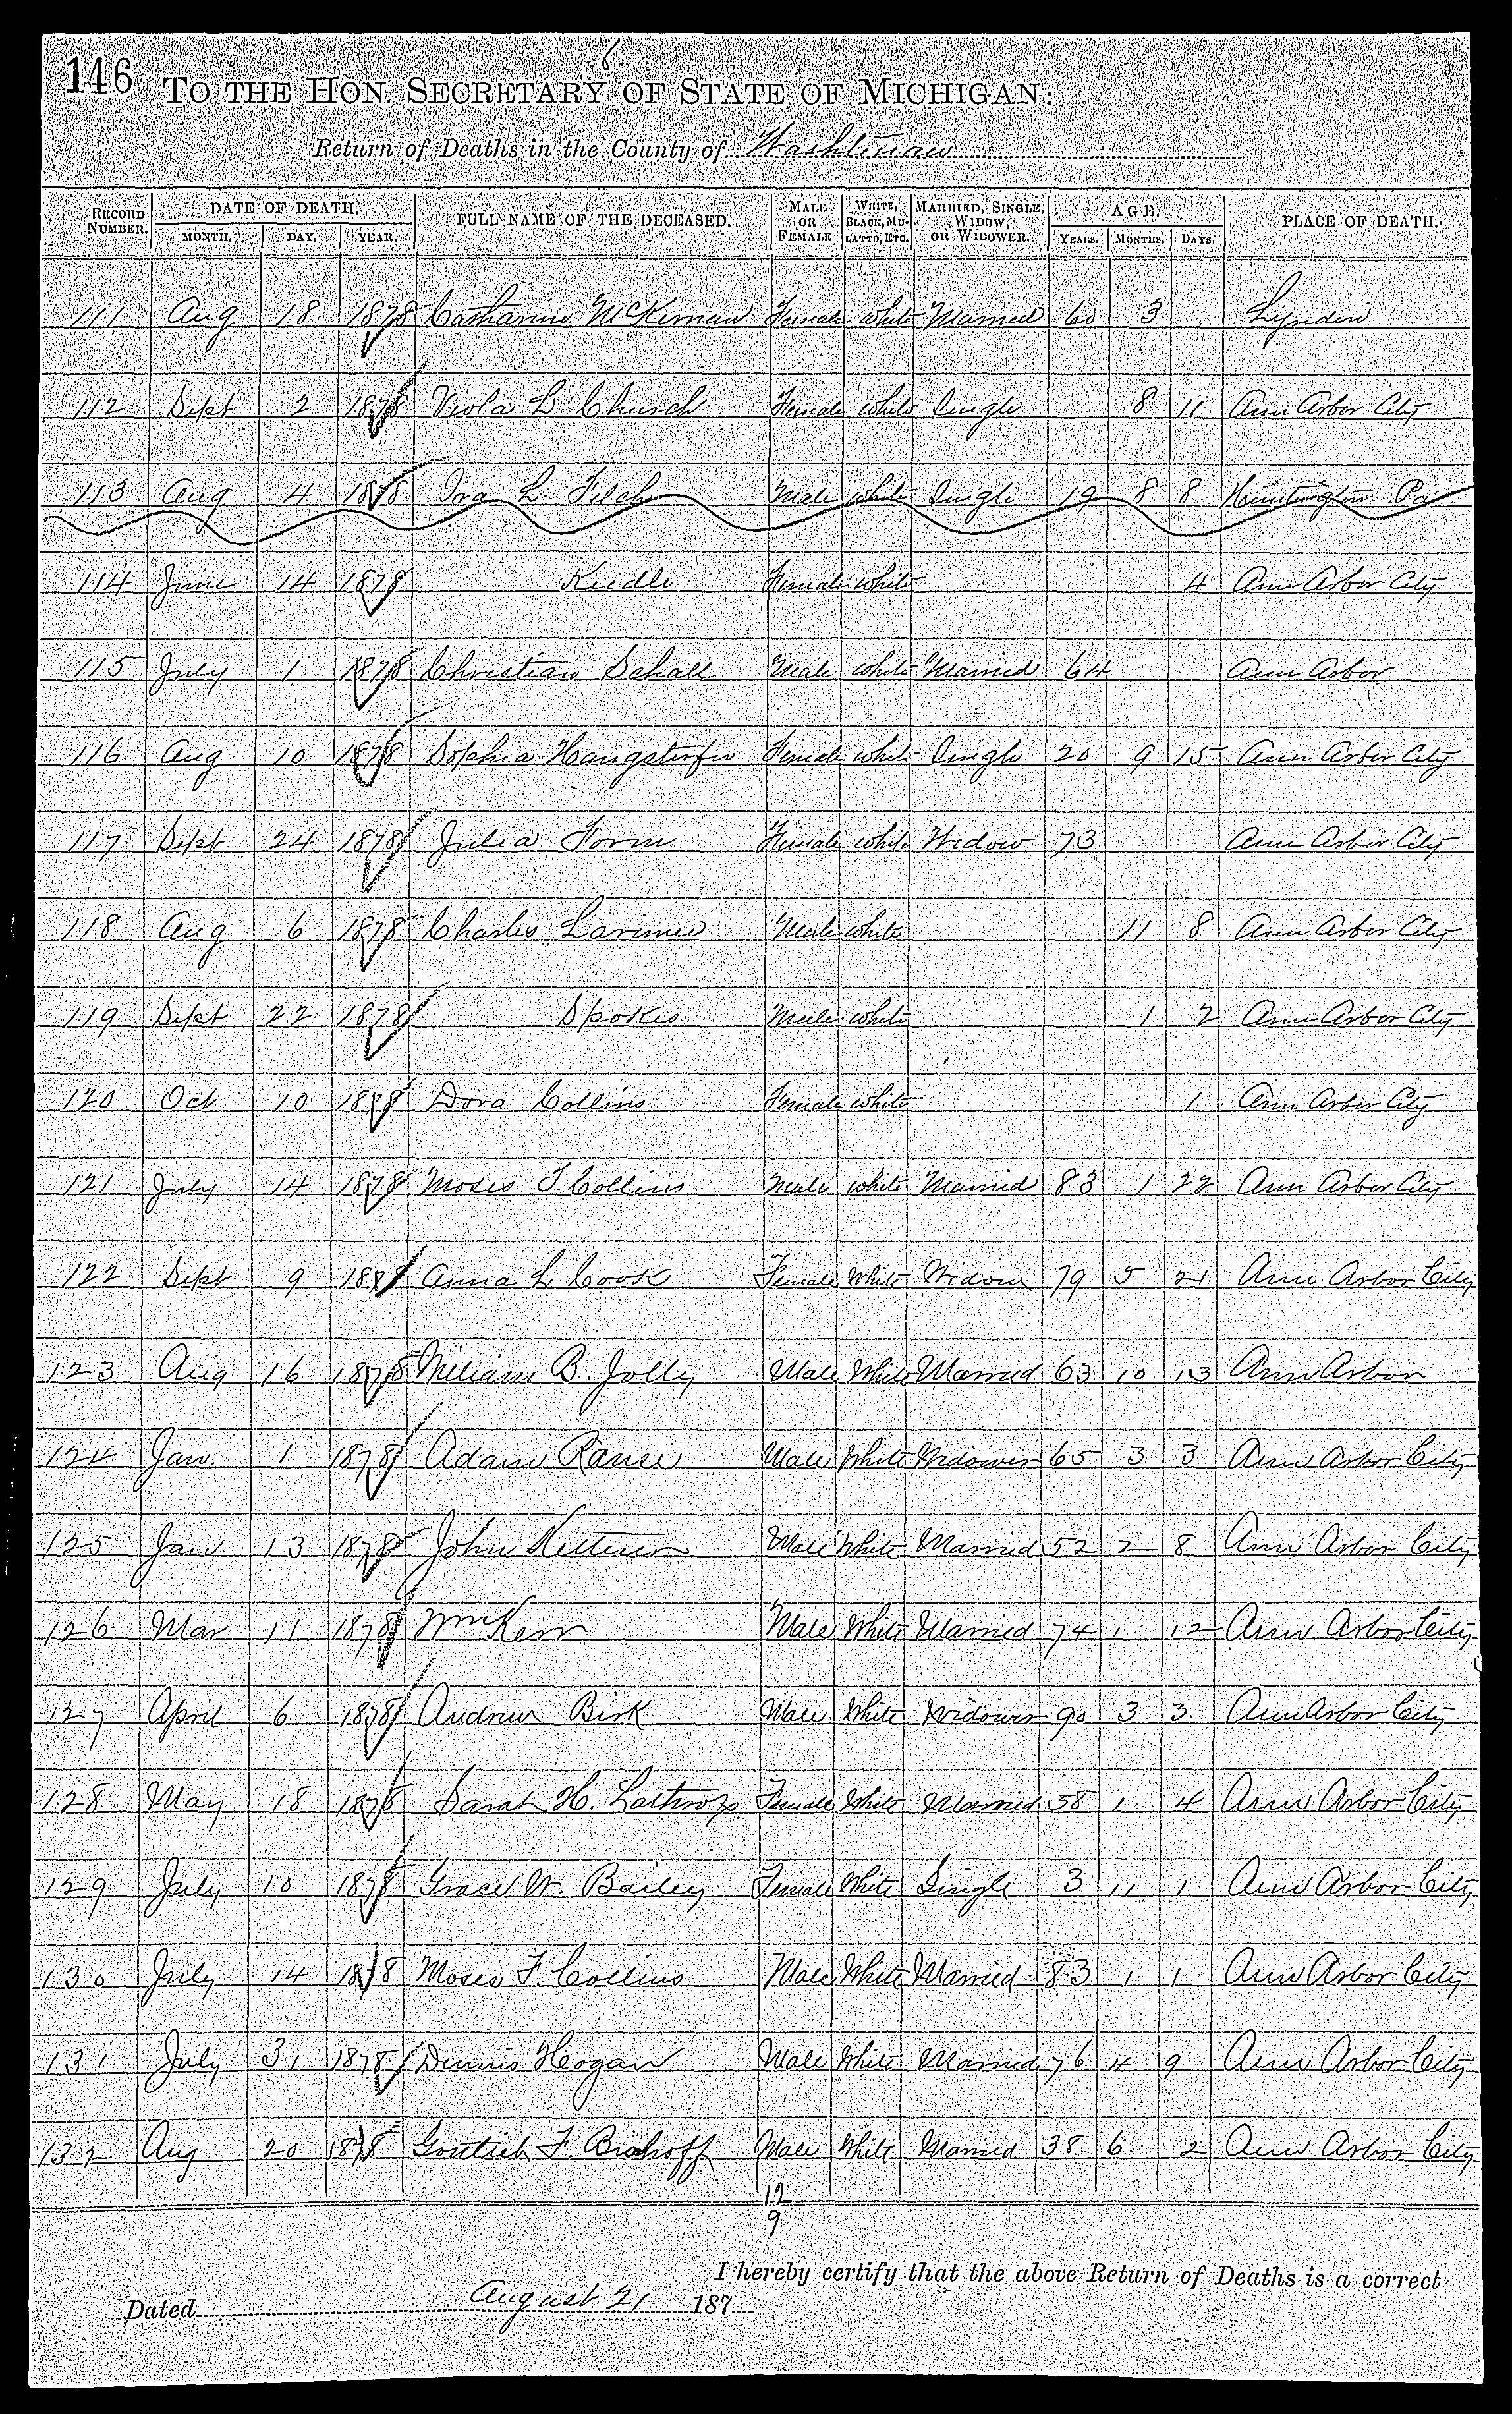 146 TO THE HON. SECRETARY OF STATE OF MICHIGAN:
Return of Deaths in the County of Washtenaw
RECORD NUMBER. DATE OF DEATH. MONTH. DAY. YEAR. FULL NAME OF THE DECEASED. MALE OR FEMALE WHITE, BLACK, MULATTO, ETC. MARRIED, SINGLE, WIDOW, OR WIDOWER. AGE. YEARS. MONTHS. DAYS. PLACE OF DEATH.
111 Aug 18 1878 Catharine McKernan Female white Married 60 3 Lyndon
112 Sept 2 1878 Viola L Church Female white Single 8 11 Ann Arbor City
113 Aug 4 1878 Ira L. Male white Single 19 8 8 Huntington Pa
114 June 14 1878 Female white 4 Ann Arbor City
115 July 1 1878 Christian Schall Male white Married 64 Ann Arbor
116 Aug 10 1878 Sophia Hangsterfer Female white Single 20 9 15 Ann Arbor City
117 Sept 24 1878 Julia Female white Widow 73 Ann Arbor City
118 Aug 6 1878 Charles Larimer Male white 11 8 Ann Arbor City
119 Sept 22 1878 Spokes Male white 1 2 Ann Arbor City
120 Oct 10 1878 Dora Collins Female white 1 Ann Arbor City
121 July 14 1878 Moses F Collins Male white Married 83 1 22 Ann Arbor City
122 Sept 9 1878 Anna L Cook Female White Widow 79 5 21 Ann Arbor City
123 Aug 16 1878 William B. Jolly Male White Married 63 10 13 Ann Arbor
124 Jan. 1 1878 Adam Male White Widower 65 3 3 Ann Arbor City
125 Jan 13 1878 John Male White Married 52 2 8 Ann Arbor City
126 Mar 11 1878 Wm Kerr Male White Married 74 1 12 Ann Arbor City
127 April 6 1878 Andrew Birk Male White Widower 90 3 3 Ann Arbor City
128 May 18 1878 Sarah H. Lathrop Female White Married 58 1 4 Ann Arbor City
129 July 10 1878 Grace W. Bailey Female White Single 3 11 1 Ann Arbor City
130 July 14 1878 Moses F. Collins Male White Married 83 1 1 Ann Arbor City
131 July 31 1878 Dennis Hogan Male White Married 76 4 9 Ann Arbor City
132 Aug 20 1878 Gottlieb F. Bischoff Male White Married 38 6 2 Ann Arbor City
12
9
I hereby certify that the above Return of Deaths is a correct
Dated August 21 187